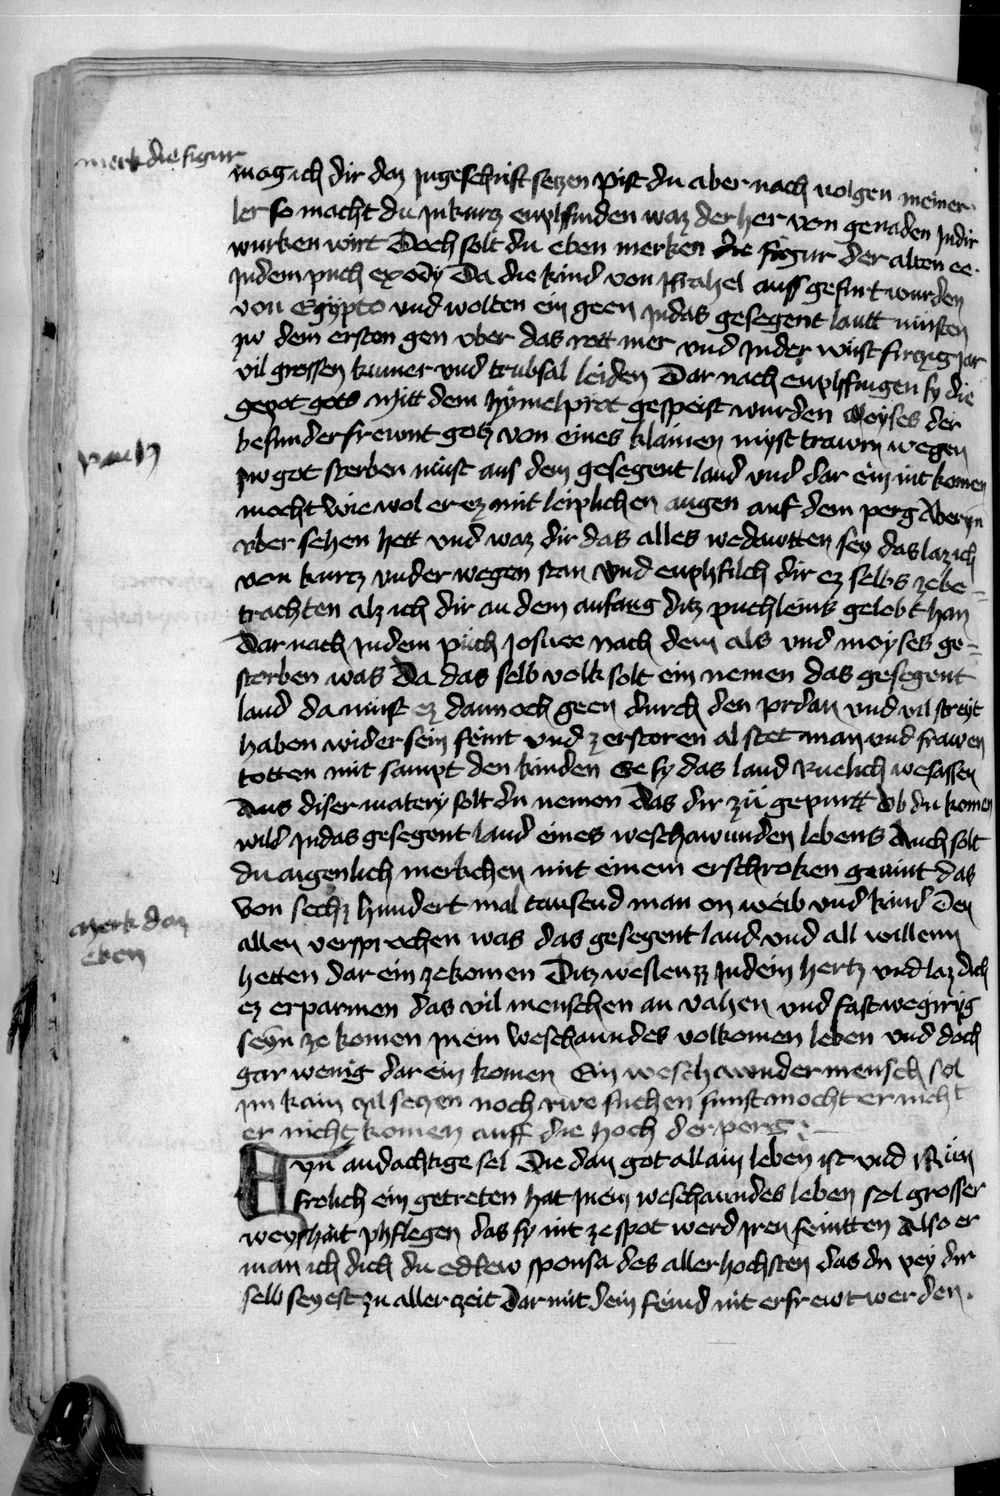 merk die figur
mag ich dir daz jngeschrift seczen pist du aber nach uolgen meiner
ler so macht du jn kurcz enphfinden waz der her von genaden jn dir
wurken wirt Doch solt du eben merken die figur der alten ee
jn dem puch exody Da die kind von jsrahel auss gefurt wurden
von Egypto vnd wolten ein geen jn das gesegent lantt musten
zw dem ersten gen vber das rott mer vnd jn der wust firczig jar
vil grossen kumer vnd trubsal leiden Dar nach enphfingen sy die
gepot gots Mitt dem hymelprot gespeist wurden Moyses der
besunder frewnt gotz von eines klainen mysstrawn wegen
zw got sterben must aus dem gesegent land vnd dar ein nit komen
mocht wie wol er ez mit leiplichen augen auf dem perg Aberyn
vber sehen hett vnd waz dir das alles wedewtten sey das laz ich
von kurcz vnder wegen stan vnd enphfilch dir ez selbs ze be=
trachten alz ich dir an dem anfang ditz puchleins gelobt han
Dar nach jn dem puch josuee nach dem als vnd moyses ge=
storben was Da das selb volk solt ein nemen das gesegent
land da must ez dannoch geen durch den jordan vnd vil streyt
haben wider sein feint vnd zerstoren al stet man vnd frawen
totten mit sampt den kinden Ee sy das land Ruelich wesassen
Aus diser matery solt du nemen Das dir zu gepurtt Ob du komen
wild jn das gesegent land eines weschawunden lebens Auch solt
du aigenlich merkchen mit einem erschroken gemut das
von sechz hundert mal tausend man on weib vnd kind Den
allen versprochen was das gesegent land vnd all willenn
hetten dar ein ze komen Ditz wesleuzz jn dein hertz vnd laz dich
ez erparmen das vil menschen an vahen vnd fast wegiryg
seyn ze komen jn em weschaundes volkomen leben vnd doch
gar wenig dar ein komen Ein weschawnder mensch sol
jm kain zil seczen noch rwe suchen sunst mocht er nicht
er nicht komen auff die hoch der perg
Ayn andachtige sel Die dan got allain leben ist vnd
frolich ein getreten hat jn ein weschaundes leben sol grosser
weyshait phflegen das sy nit ze spot werd jren feintten Also er
man ich dich du edlew sponsa des aller hochsten das du pey dir
selb seyest zu aller zeit Dar mit dein feind nit erfrewt werden
merk dan
eben